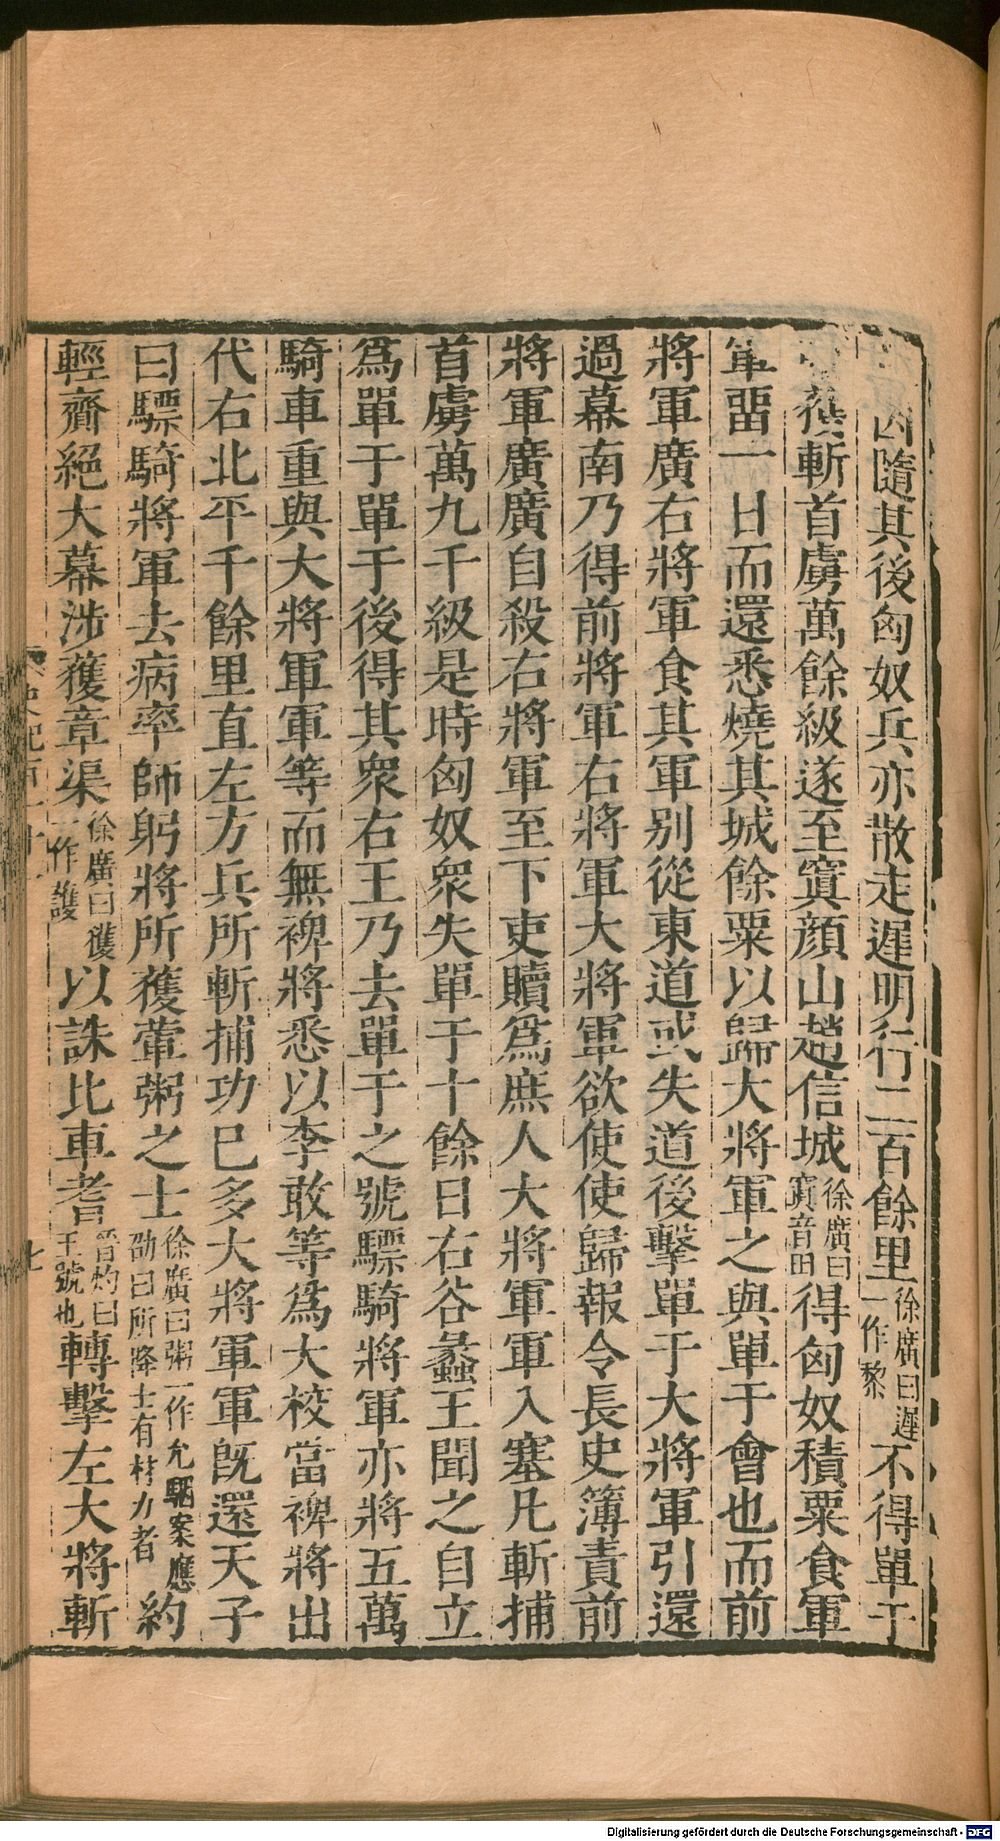 因隨其後匈奴兵亦散走遲明行二百餘里徐廣曰遲一作黎不得單于
獲斬首虜萬餘級遂至窴顏山趙信城徐廣曰窴音田得匈奴積粟食軍
軍畱一日而還悉燒其城餘粟以歸大將軍之與單于會也而前
將軍廣右將軍食其軍别從東道或失道後擊單于大將軍引還
過幕南乃得前將軍右將軍大將軍欲使使歸報令長史簿責前
將軍廣廣自殺右將軍至下吏贖爲庶人大將軍軍入塞凡斬捕
首虜萬九千級是時匈奴衆失單于十餘日右谷蠡王聞之自立
爲單于單于後得其衆右王乃去單于之號驃騎將軍亦將五萬
騎車重與大將軍軍等而無裨將悉以李敢等爲大校當裨將出
代右北平千餘里直左方兵所斬捕功已多大將軍軍既還天子
曰驃騎將軍去病率師躬將所獲葷粥之士徐廣曰粥一作允駰案應劭曰所降士有材力者約
輕齎絕大幕涉獲章渠徐廣曰獲一作護以誅比車耆晉灼曰王號也轉擊左大將斬
七
Digitalisierung gefördert durch die Deutsche Forschungsgemeinschaft - DFG